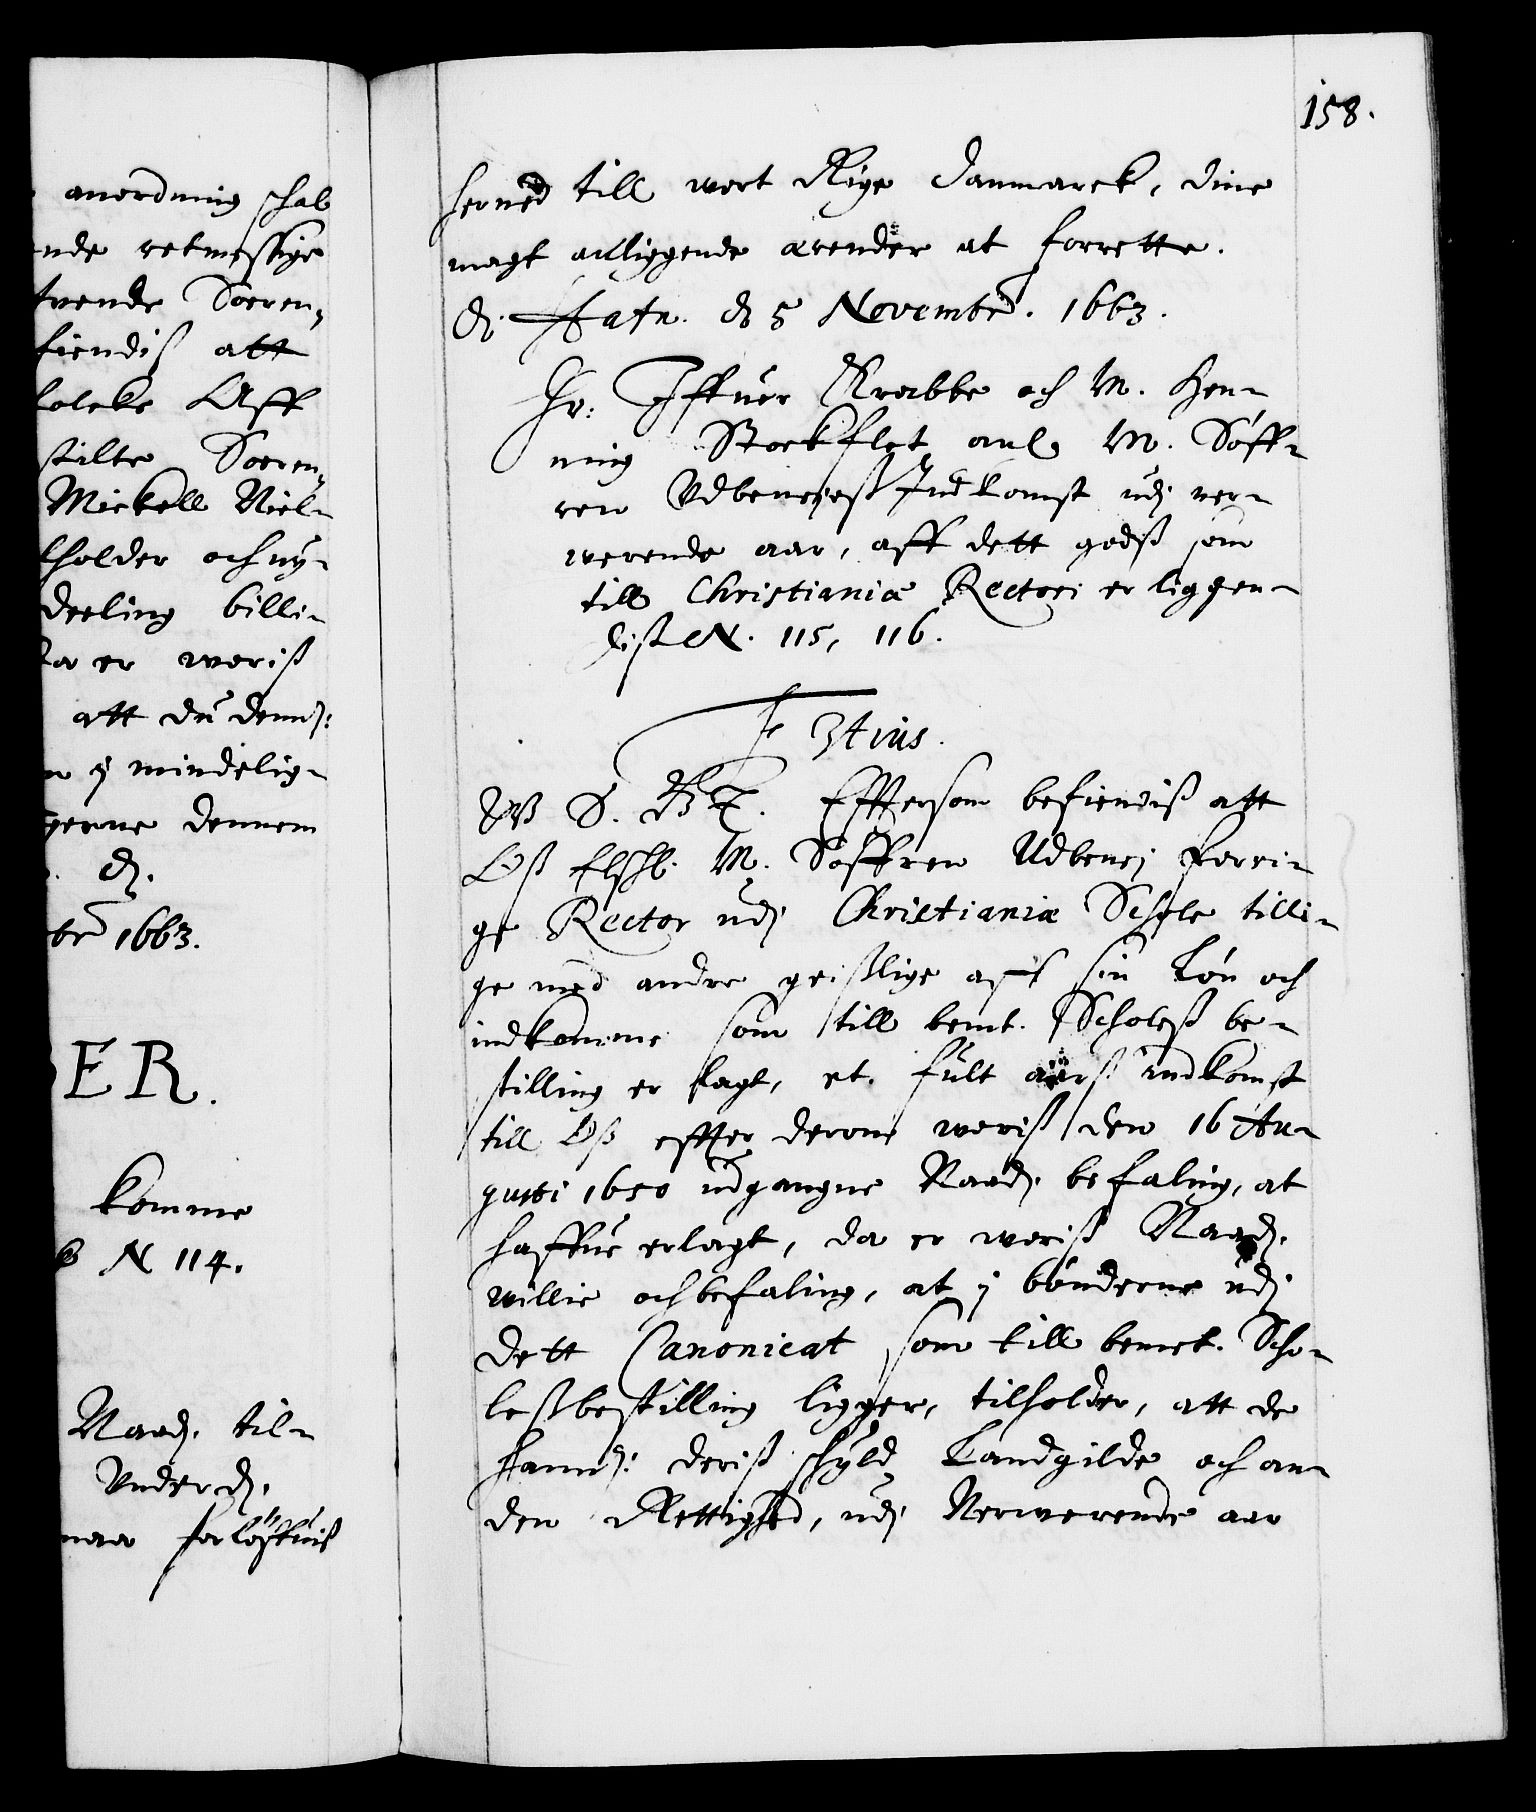 anordning schal
nde retmessige
tvende Soeren,
fiendiß att
folcke Aff
stilte Soren,
Mickell Niel-
holder och ny-
deeling billi-
da er woriß
att du dennß:
n y mindelig-
gerne dennem
. D.
br 1663.
ER.
komme
N 114.
Naad. til-
Under D.
naar
158.
herned till wort Rige Danmarck, dine
magt anliggende ærender at forrette.
D. Hafn. d 5 Novembr. 1663.
Hr: Iffuer Krabbe och M. Hen-
ning Stockflet anl. M. Söff-
ren Udbeneyeß Indkomst udj ner-
werende aar, aff dett godß som
till Christianiæ Rectori er liggen-
diß N. 115, 116.
F 3tius.
W. S. G. T. Efftersom befindiß att
Oß Elschl. M. Söffren Udbenej forri-
ge Rector udj Christianiæ Schole tilli-
ge med andre geistlige aff sin Lön och
indkomme som till bemt. Scholeß be-
stilling er lagt, et fult aarß indkomst
till Oß effter derom woriß den 16 Au-
gusti 1650 udgangne Naad. befaling, at
haffue erlagt, da er woriß Naad.
willie och befaling, at y bönderne udj
dett Canonicat som till bemt. Scho-
leßbestilling ligger, tilholder, att de
hannß: deriß schyld Landgilde och an-
den Rettighed, udj Nerwerende aar